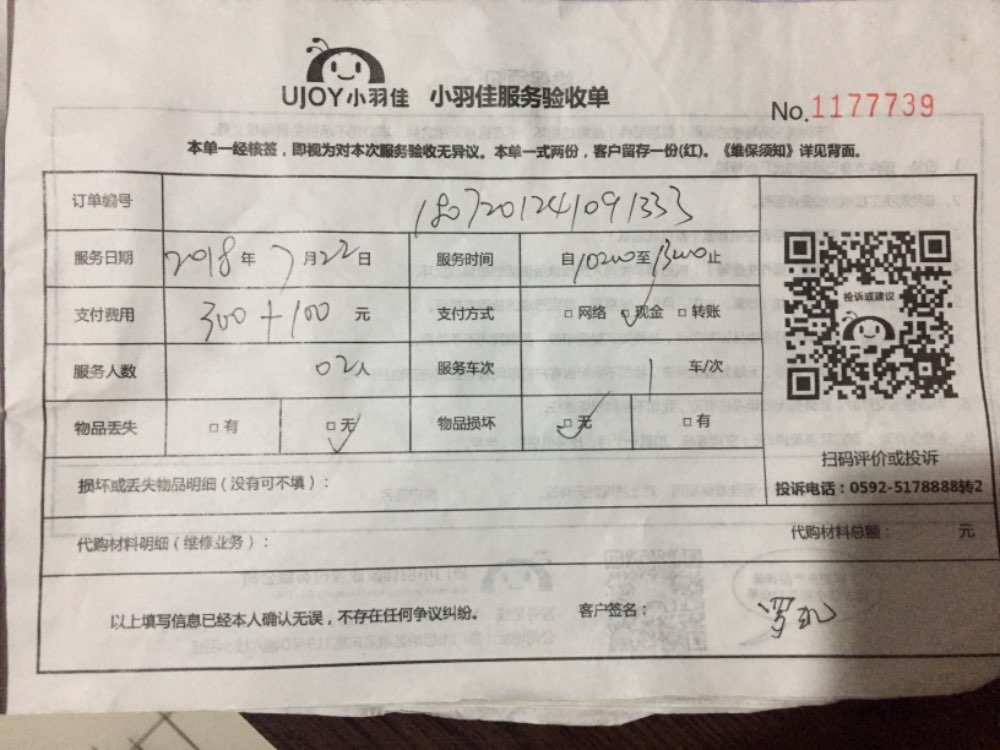 UJOY小羽佳 小羽佳服务验收单
No.1177739
本单一经核签，即视为对本次服务验收无异议。本单一式两份，客户留存一份(红)。《维保须知》详见背面。
订单编号 1807201241091333
服务日期 2018年7月22日 服务时间 自10200至13200止
支付费用 300+100 元 支付方式 □网络 □现金 □转账
投诉或建议
服务人数 02人 服务车次 1 车/次
物品丢失 □有 □无 物品损坏 □无 □有
扫码评价或投诉
损坏或丢失物品明细（没有可不填）：
投诉电话：0592-5178888转2
代购材料明细（维修业务）： 代购材料总额： 元
以上填写信息已经本人确认无误，不存在任何争议纠纷。 客户签名：